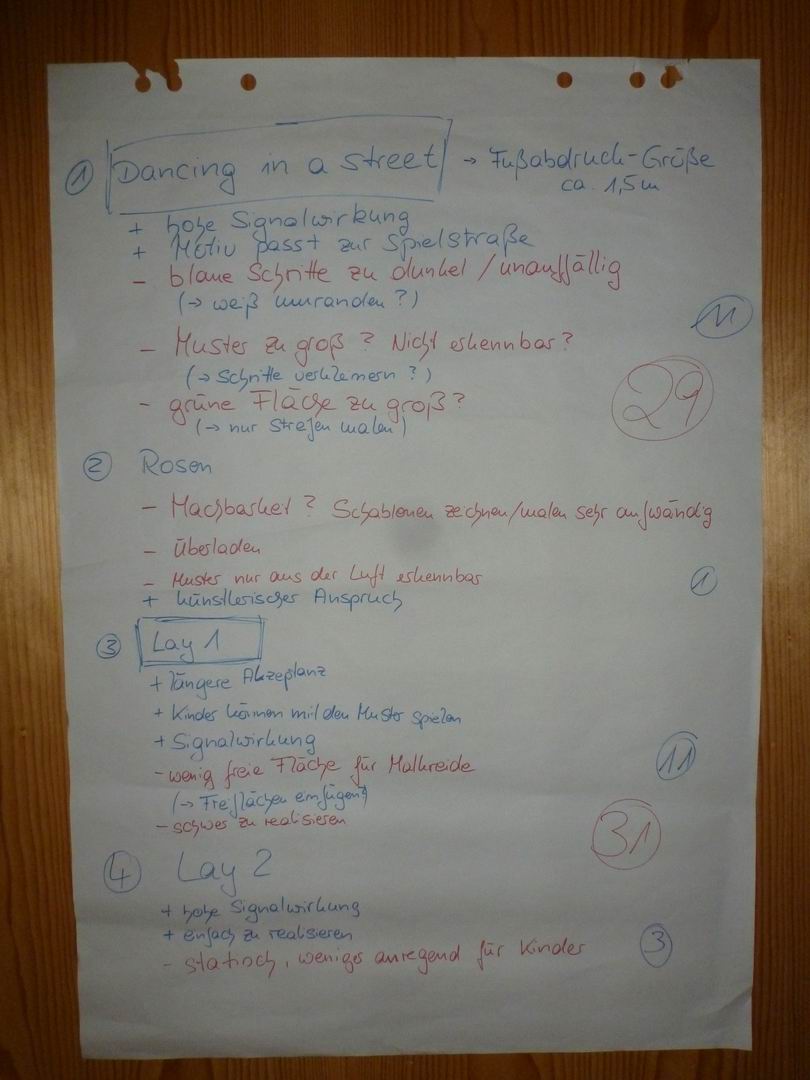 ① Dancing in a street → Fußabdruck-Größe
ca. 1,5m
+ hohe Signalwirkung
+ Motiv passt zur Spielstraße
- blaue Schritte zu dunkel / unauffällig
(→ weiß umranden?)
11
- Muster zu groß? Nicht erkennbar?
(→ Schritte verkleinern?)
29
- grüne Fläche zu groß?
(→ nur Streifen malen)
② Rosen
- Machbarkeit? Schablonen zeichnen/malen sehr aufwändig
- überladen
- Muster nur aus der Luft erkennbar
1
+ künstlerischer Anspruch
③ Lay 1
+ längere Akzeptanz
+ Kinder können mit den Muster spielen
+ Signalwirkung
11
- wenig freie Fläche für Malkreide
(→ Freiflächen einfügen?)
- schwer zu realisieren
31
④ Lay 2
+ hohe Signalwirkung
+ einfach zu realisieren
3
- statisch, weniger anregend für Kinder